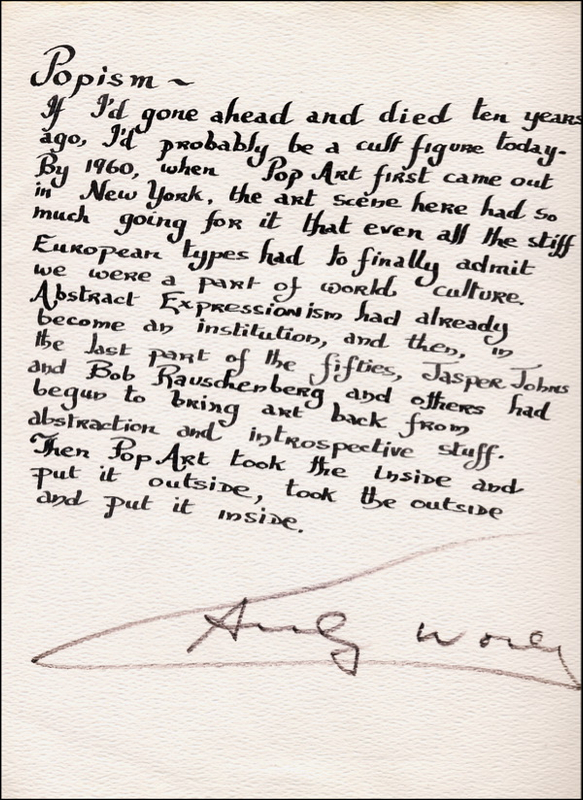 Popism ~
If I'd gone ahead and died ten years
ago, I'd probably be a cult figure today.
By 1960, when Pop Art first came out
in New York, the art scene here had so
much going for it that even all the stiff
European types had to finally admit
we were a part of world culture.
Abstract Expressionism had already
become an institution, and then, in
the last part of the fifties, Jasper Johns
and Bob Rauschenberg and others had
begun to bring art back from
abstraction and introspective stuff.
Then Pop Art took the inside and
put it outside, took the outside
and put it inside.
Andy